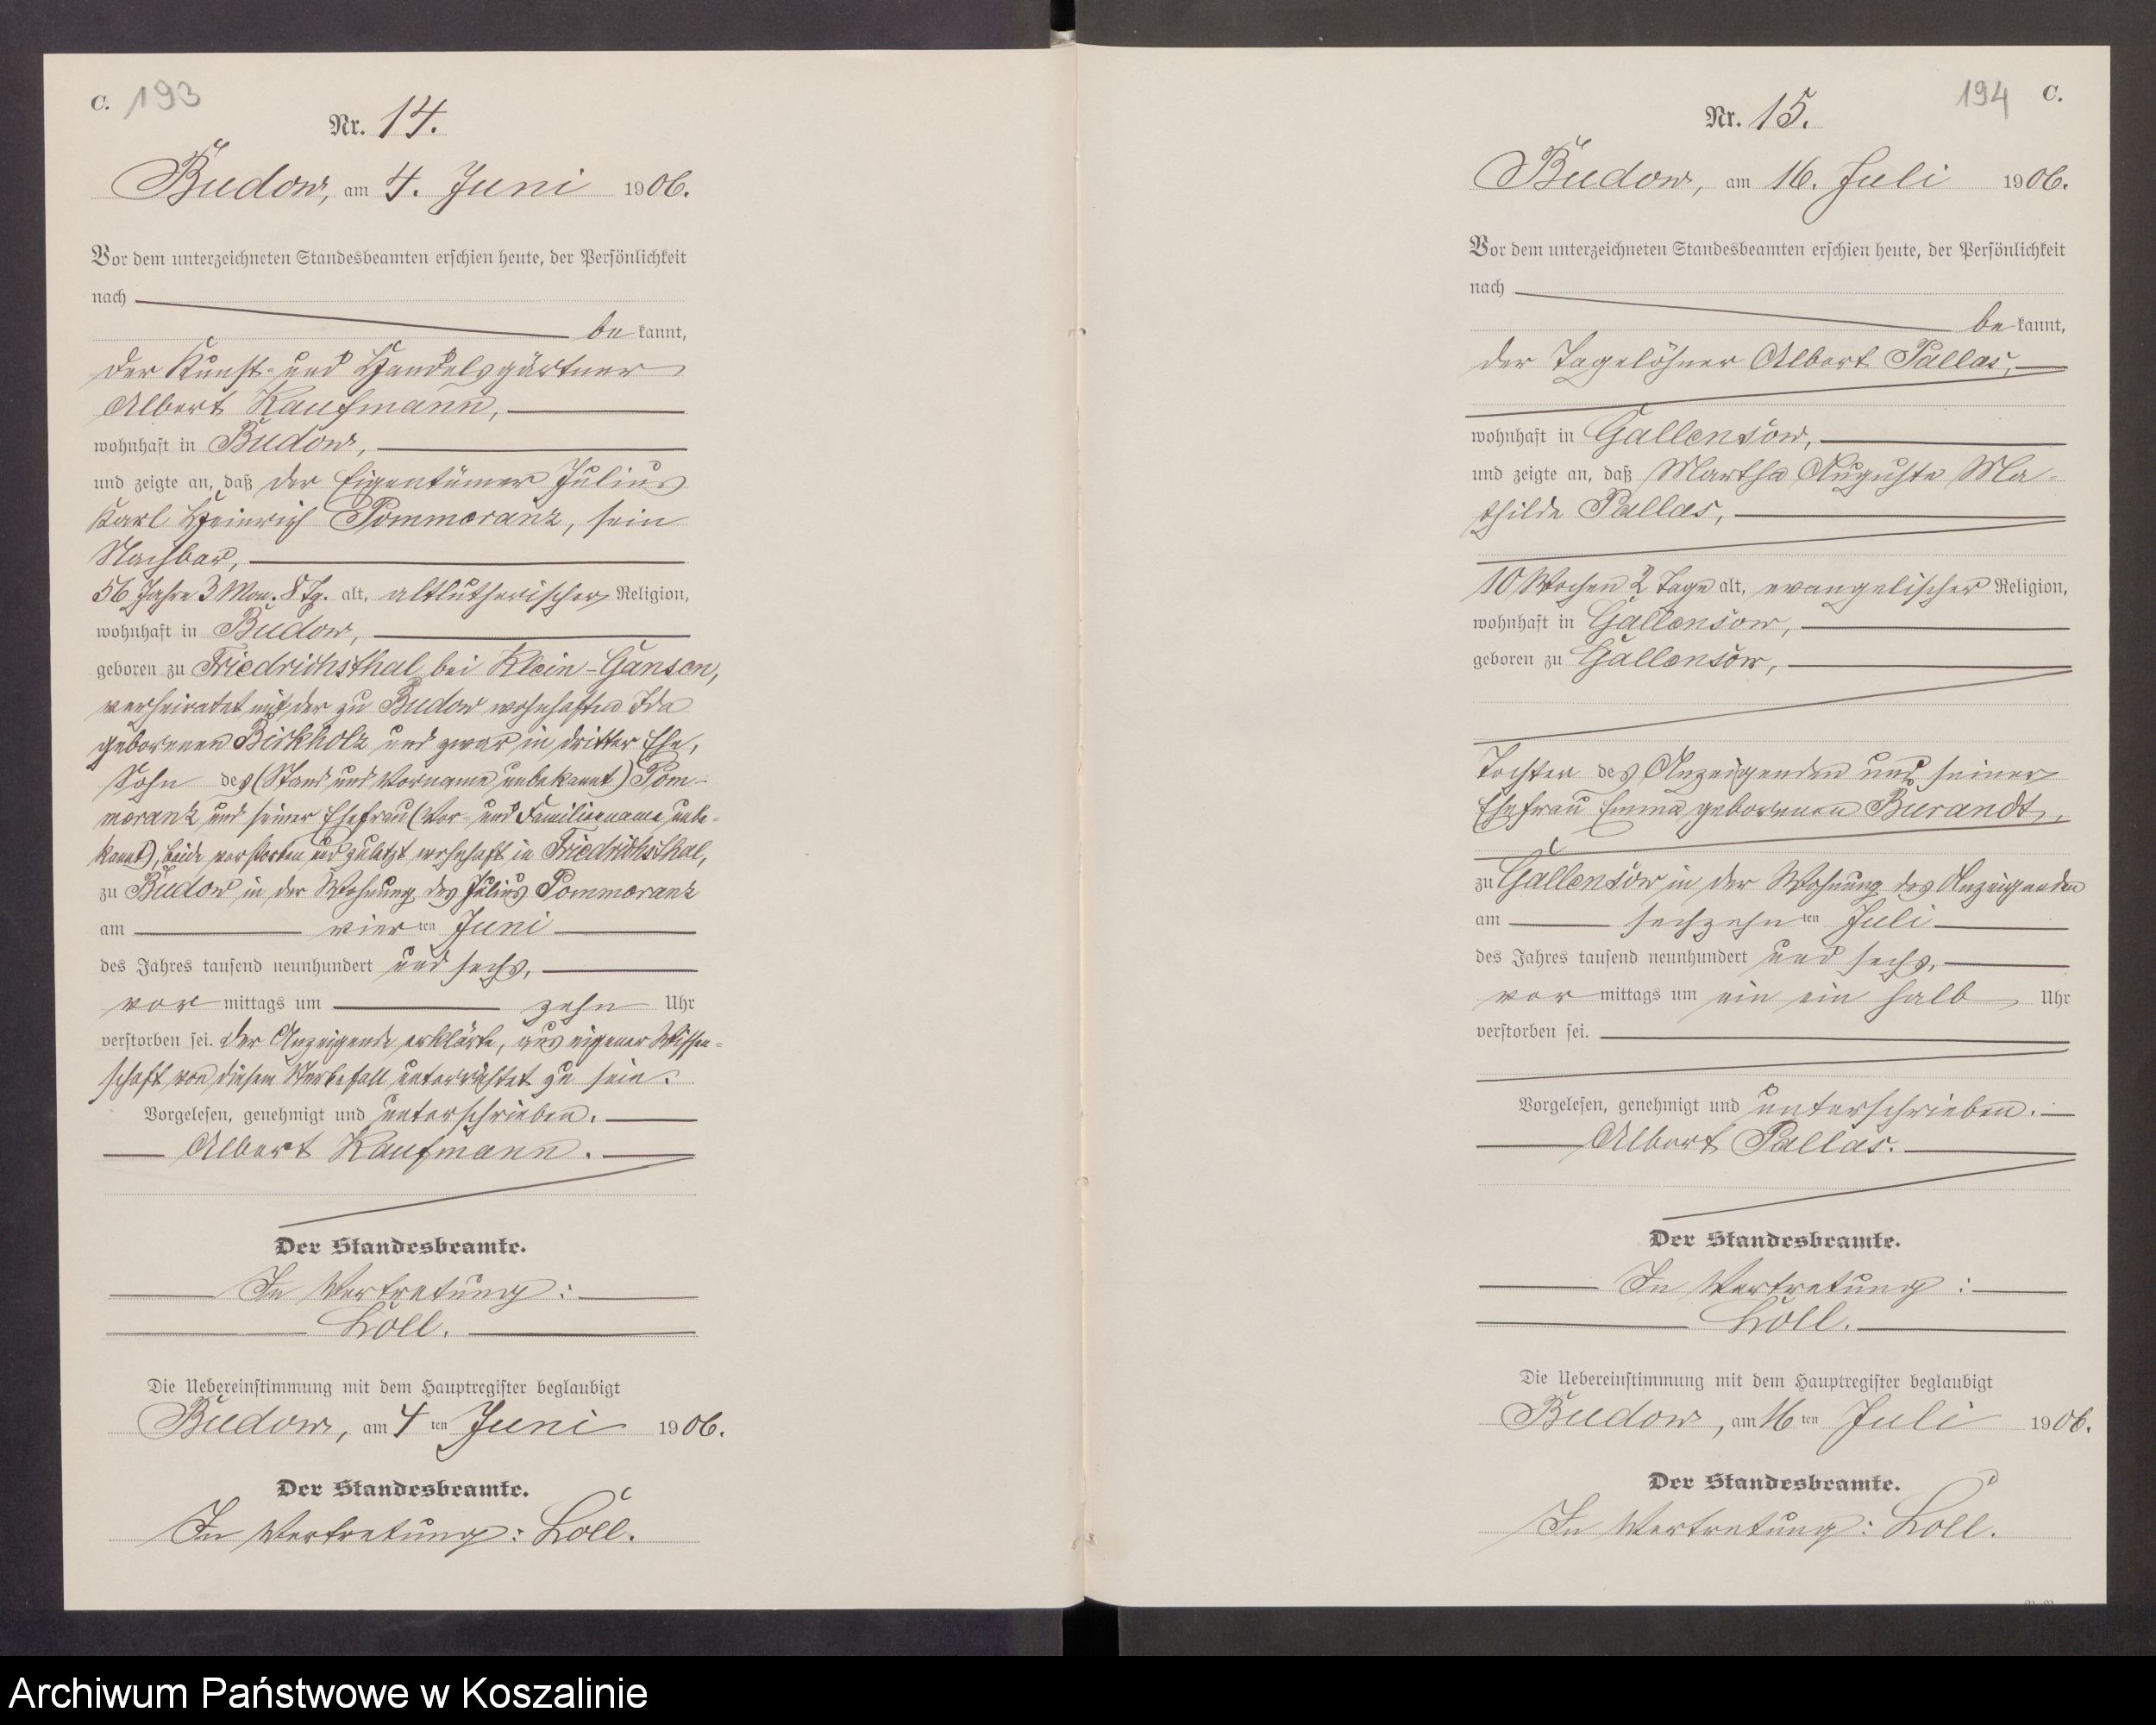 C. 193
Nr. 14.
Budow, am 4. Juni 1906.
Vor dem unterzeichneten Standesbeamten erschien heute, der Persönlichkeit
nach
be kannt,
der Kunst- und Handelsgärtner
Albert Kaufmann,
wohnhaft in Budow,
und zeigte an, daß der Eigentümer Julius
Karl Heinrich Pommeranz, sein
Nachbar,
56 Jahre 3 Mon. 8 Tg. alt, altlutherischer Religion,
wohnhaft in Budow,
geboren zu Friedrichsthal bei Klein-Gansen,
verheiratet mit der zu Budow wohnhaften Ida
geborenen Birkholz und zwar in dritter Ehe,
Sohn des (Stand und Vorname unbekannt) Pom-
meranz und seiner Ehefrau (Vor- und Familienname unbe-
kannt), beide verstorben und zuletzt wohnhaft in Friedrichsthal,
zu Budow in der Wohnung des Julius Pommeranz
am vier ten Juni
des Jahres tausend neunhundert und sechs,
vor mittags um zehn Uhr
verstorben sei. Der Anzeigende erklärte, aus eigener Wissen-
schaft von diesem Sterbefall unterrichtet zu sein.
Vorgelesen, genehmigt und unterschrieben.
Albert Kaufmann.
Der Standesbeamte.
In Vertretung:
Loll.
Die Uebereinstimmung mit dem Hauptregister beglaubigt
Budow, am 4 ten Juni 1906.
Der Standesbeamte.
In Vertretung: Loll.
194 C.
Nr. 15.
Budow, am 16. Juli 1906.
Vor dem unterzeichneten Standesbeamten erschien heute, der Persönlichkeit
nach
be kannt,
der Tagelöhner Albert Pallas,
wohnhaft in Gallensow,
und zeigte an, daß Martha Auguste Ma-
thilde Pallas,
10 Wochen 2 Tage alt, evangelischer Religion,
wohnhaft in Gallensow,
geboren zu Gallensow,
Tochter des Anzeigenden und seiner
Ehefrau Emma geborenen Burandt,
zu Gallensow in der Wohnung des Anzeigenden
am sechzehn ten Juli
des Jahres tausend neunhundert und sechs,
vor mittags um ein ein halb Uhr
verstorben sei.
Vorgelesen, genehmigt und unterschrieben.
Albert Pallas.
Der Standesbeamte.
In Vertretung:
Loll.
Die Uebereinstimmung mit dem Hauptregister beglaubigt
Budow, am 16 ten Juli 1906.
Der Standesbeamte.
In Vertretung: Loll.
Archiwum Państwowe w Koszalinie